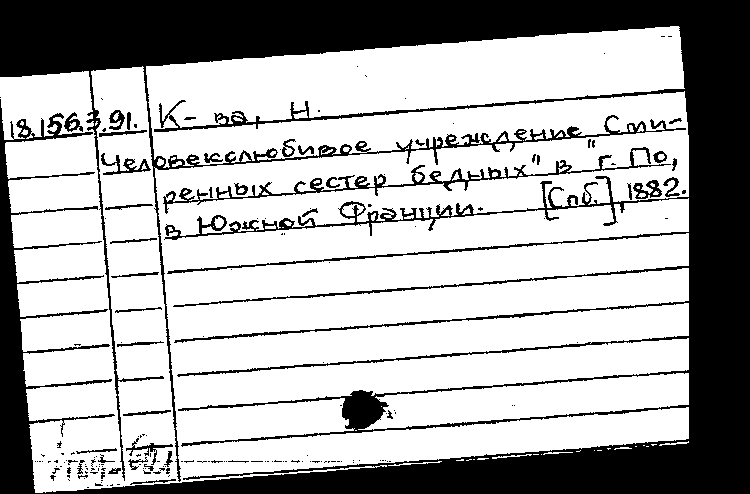 18.156.3.91. К-ва, Н.
Человеколюбивое учреждение Сми-
ренных сестер бедных" в "г. По,
в Южной Франции. [Спб.], 1882.